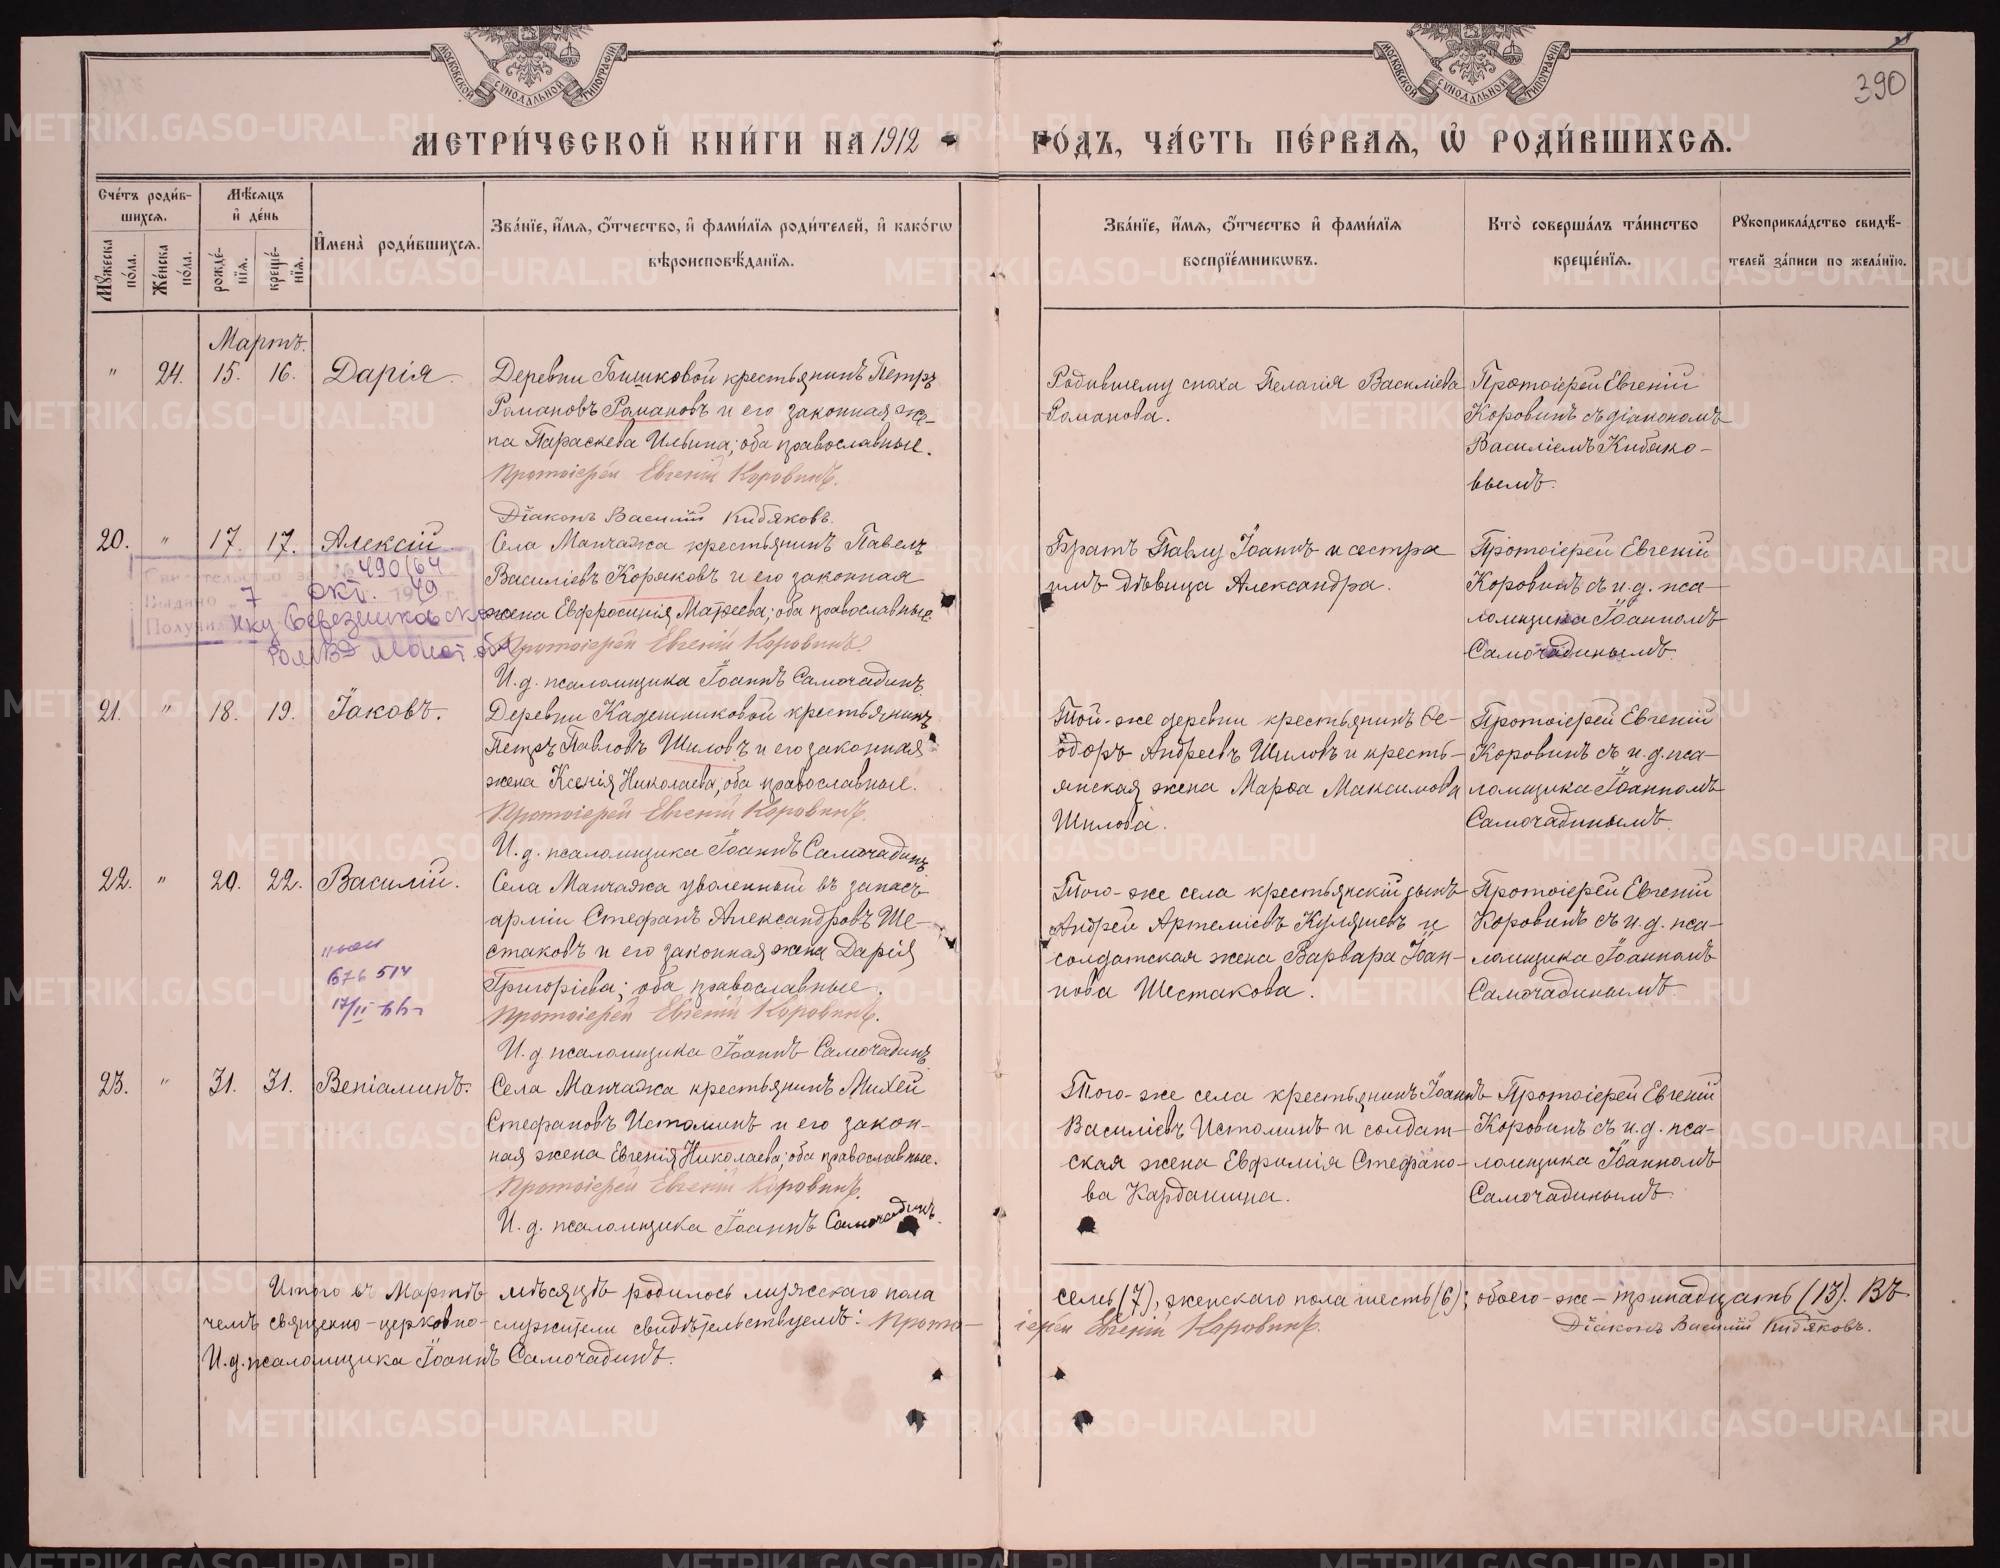 МОСКОВСКОЙ СѴНОДАЛЬНОЙ ТИПОГРАФІИ
МОСКОВСКОЙ СѴНОДАЛЬНОЙ ТИПОГРАФІИ
390
МЕТРИ́ЧЕСКОЙ КНИ́ГИ НА 1912
ГО́ДЪ, ЧА́СТЬ ПЕ́РВАѦ, Ѽ РОДИ́ВШИХСѦ.
Сче́тъ роди́в-
шихсѧ.
Мѣ́сѧцъ
и҆ де́нь
И҆мена̀ роди́вшихсѧ.
Зва́нїе, и҆́мѧ, ѻ҆́тчество, и҆ фами́лїѧ роди́телей, и҆ како́гѡ
вѣроисповѣ́данїѧ.
Мꙋ́жеска
по́ла.
Же́нска
по́ла.
рожде́-
нїѧ.
креще́-
нїѧ.
Зва́нїе, и҆́мѧ, ѻ҆́тчество и҆ фами́лїѧ
воспрїе́мникѡвъ.
Кто̀ соверша́лъ та́инство
креще́нїѧ.
Рꙋкоприкла́дство свидѣ́-
телей за́писи по жела́нїю.
Мартъ.
" 24. 15. 16. Дарія.
Деревни Бишковой крестьянинъ Петръ
Романовъ Романовъ и его законная же-
на Параскева Ильина; оба православные.
Протоіерей Евгеній Коровинъ.
Діаконъ Василій Кибяковъ.
Родившему сноха Пелагія Василіева
Романова.
Протоіерей Евгеній
Коровинъ съ діакономъ
Василіемъ Кибяко-
вымъ.
20. " 17. 17. Алексій
Села Манчажа крестьянинъ Павелъ
Василіевъ Коряковъ и его законная
жена Евфросинія Матѳеева; оба православные.
Протоіерей Евгеній Коровинъ.
И. д. псаломщика Іоаннъ Самочадинъ.
Братъ Павлу Іоаннъ и сестра
имъ дѣвица Александра.
Протоіерей Евгеній
Коровинъ съ и. д. пса-
ломщика Іоанномъ
Самочадинымъ.
№ 490164
Выдано 7 окт. 1949 г.
21. " 18. 19. Іаковъ.
Деревни Кадешниковой крестьянинъ
Петръ Павловъ Шиловъ и его законная
жена Ксенія Николаева; оба православные.
Протоіерей Евгеній Коровинъ.
И. д. псаломщика Іоаннъ Самочадинъ
Той-же деревни крестьянинъ Ѳе-
одоръ Андреевъ Шиловъ и кресть-
янская жена Марѳа Максимова
Шилова.
Протоіерей Евгеній
Коровинъ съ и. д. пса-
ломщика Іоанномъ
Самочадинымъ
22. " 20. 22. Василій.
Села Манчажа уволенный въ запасъ
арміи Стефанъ Александровъ Ше-
стаковъ и его законная жена Дарія
Григоріева; оба православные.
Протоіерей Евгеній Коровинъ.
И. д. псаломщика Іоаннъ Самочадинъ
676 514
17/II 66 г
Того-же села крестьянскій сынъ
Андрей Артеміевъ Куляшевъ и
солдатская жена Варвара Іоан-
нова Шестакова.
Протоіерей Евгеній
Коровинъ съ и. д. пса-
ломщика Іоанномъ
Самочадинымъ.
23. " 31. 31. Веніаминъ.
Села Манчажа крестьянинъ Михей
Стефановъ Истоминъ и его закон-
ная жена Евгенія Николаева; оба православные.
Протоіерей Евгеній Коровинъ.
И. д. псаломщика Іоаннъ Самочадинъ.
Того-же села крестьянинъ Іоаннъ
Василіевъ Истоминъ и солдат-
ская жена Евфимія Стефано-
ва Кардашина.
Протоіерей Евгеній
Коровинъ съ и. д. пса-
ломщика Іоанномъ
Самочадинымъ.
Итого въ Мартѣ мѣсяцѣ родилось мужескаго пола семь (7), женскаго пола шесть (6); обоего-же-тринадцать (13). Въ
чемъ священно-церковно-служители свидѣтельствуемъ: Прото-іерей Евгеній Коровинъ. Діаконъ Василій Кибяковъ.
И. д. псаломщика Іоаннъ Самочадинъ.
METRIKI.GASO-URAL.RU